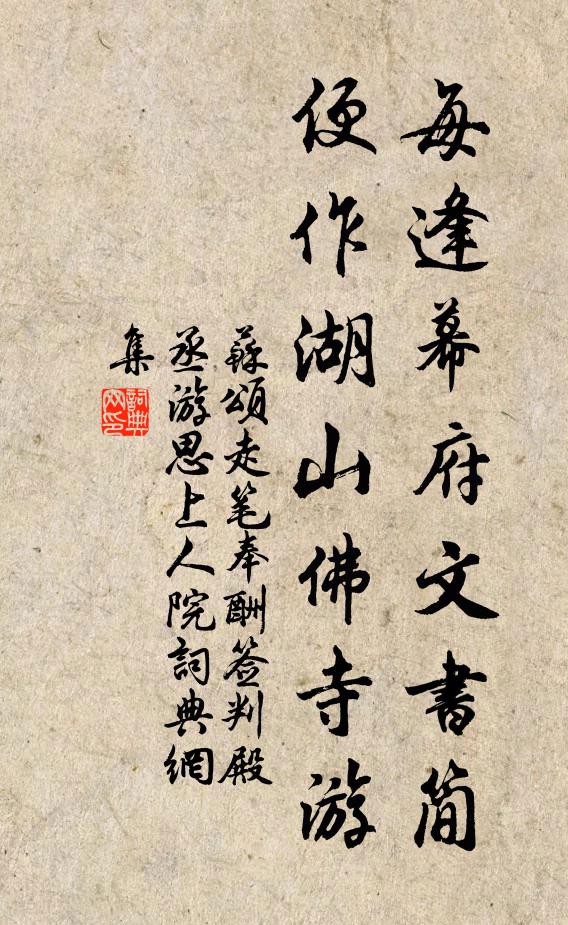 每逢幕府文書簡
便作湖山佛寺游
蘇頌走笔奉酬签判殿
丞游思上人院詞典網
集
詞典網印